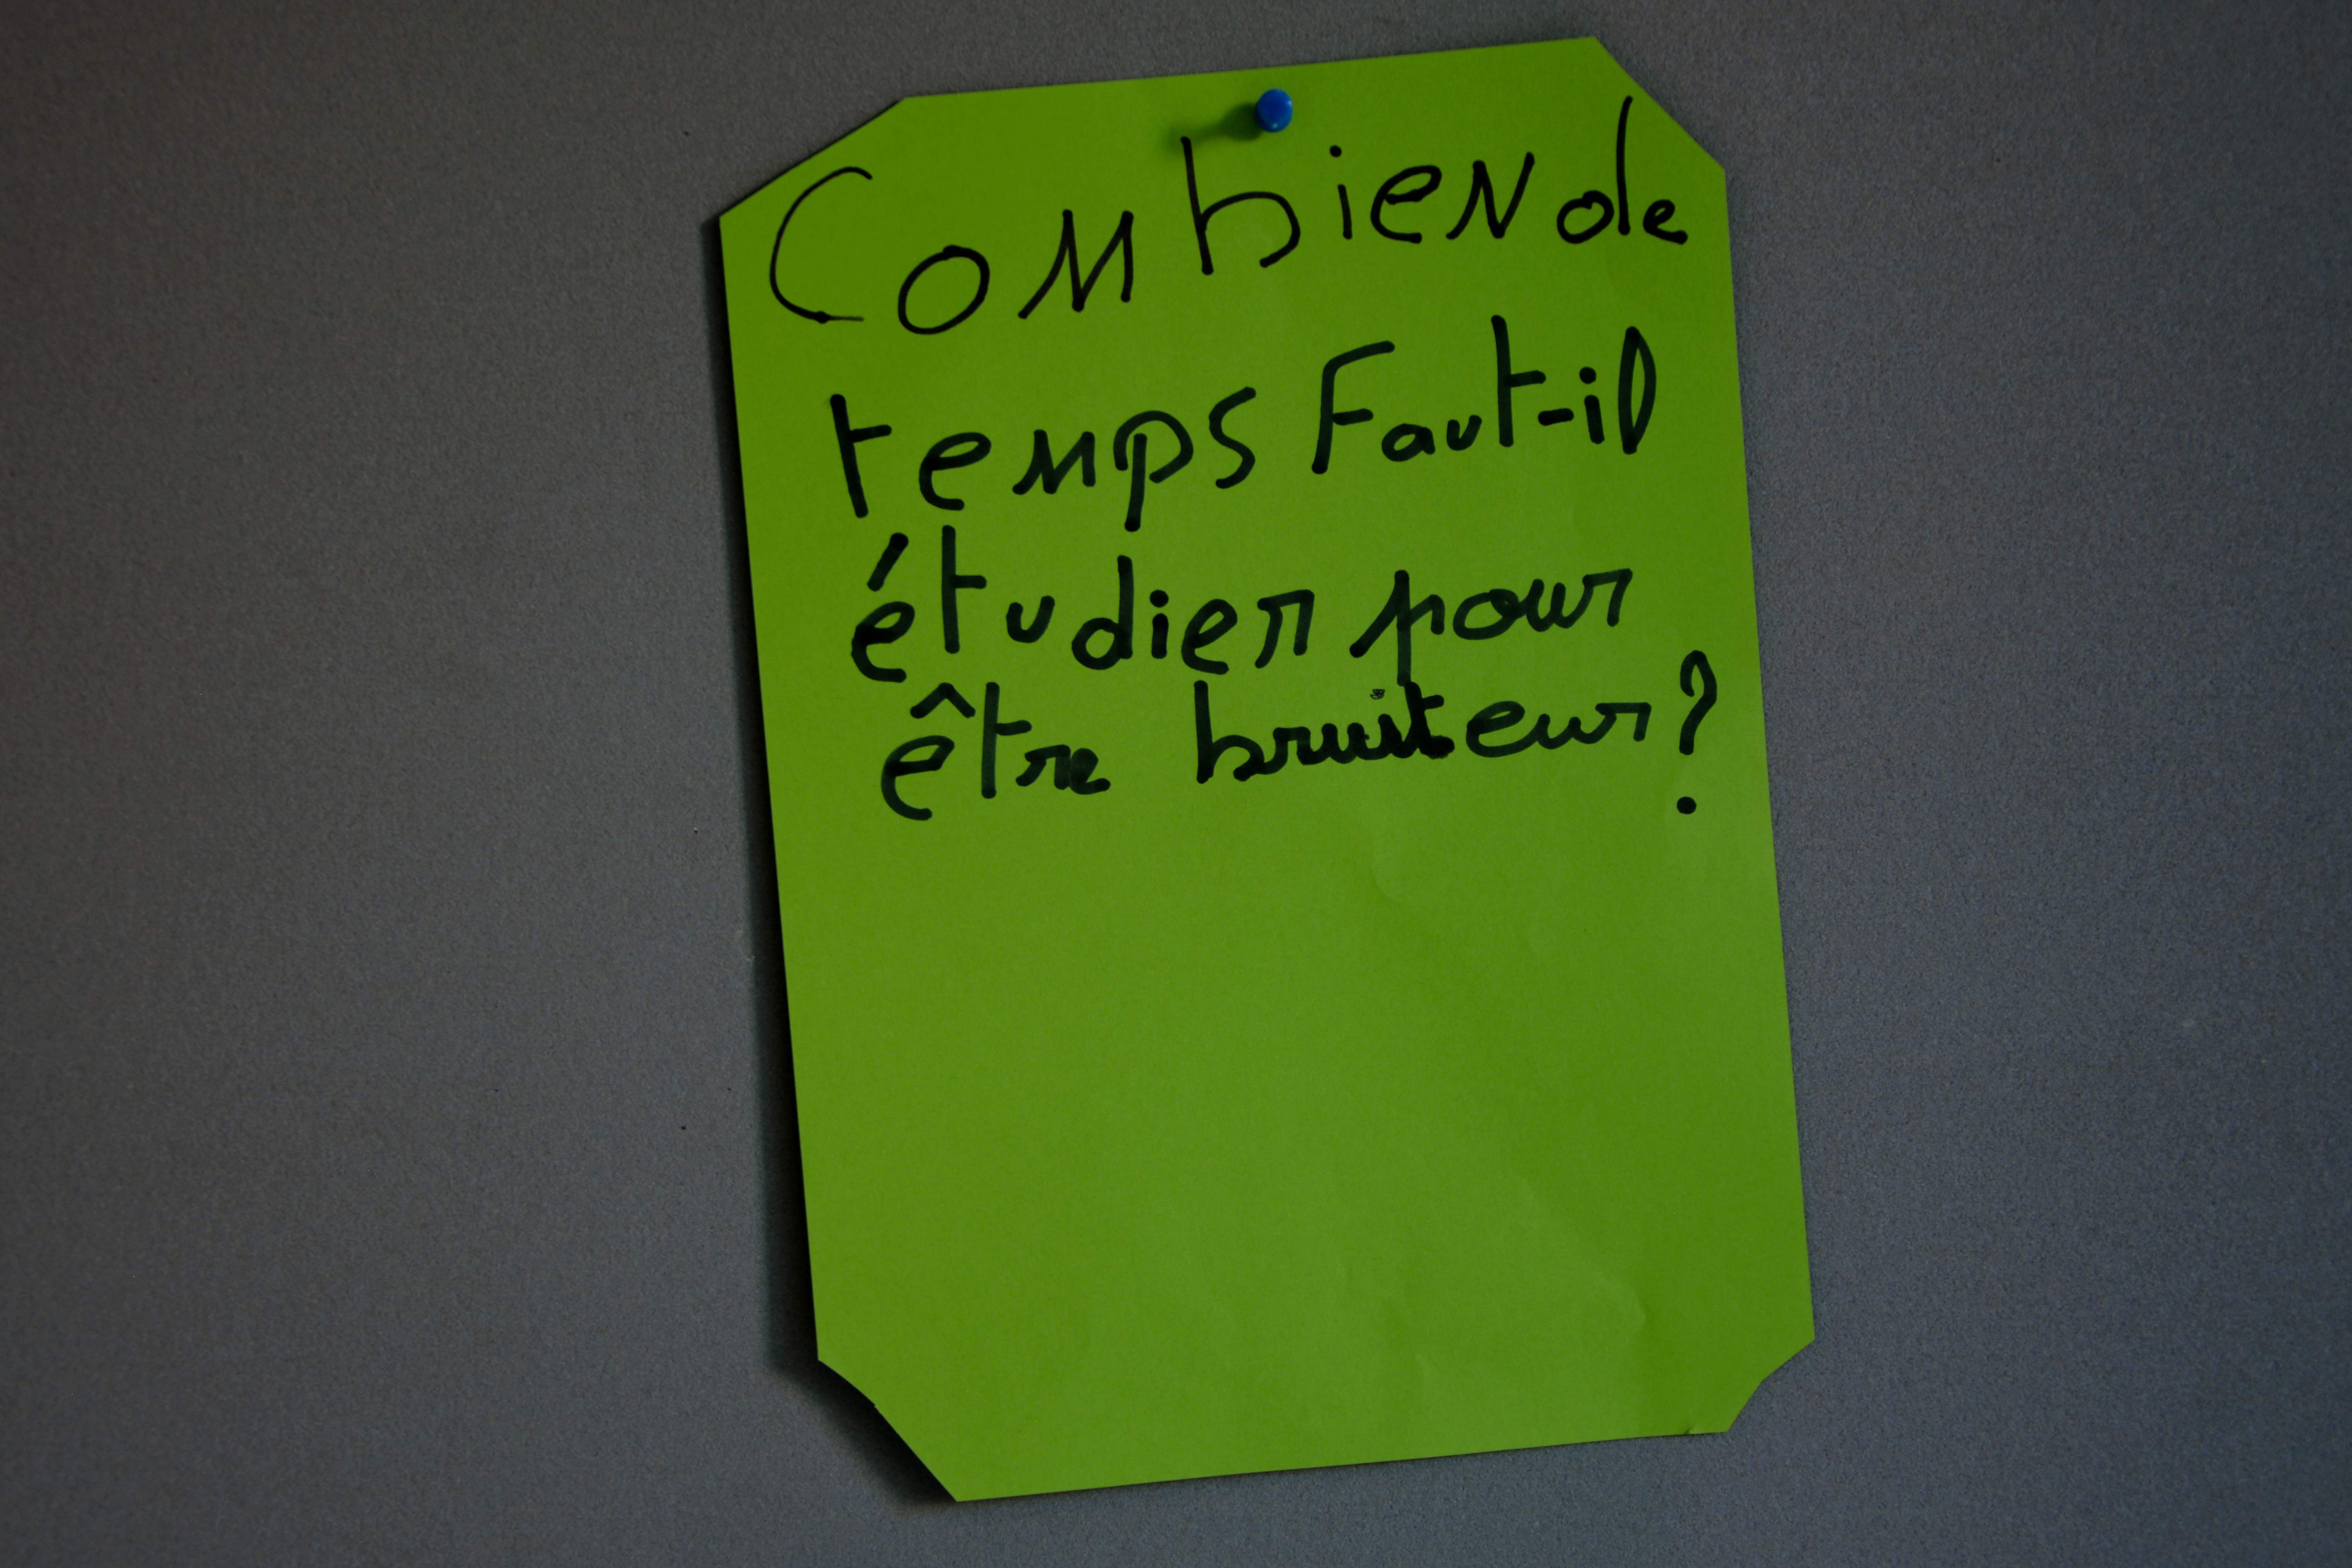 Combien de
temps Faut-il
étudier pour
être bruiteur ?